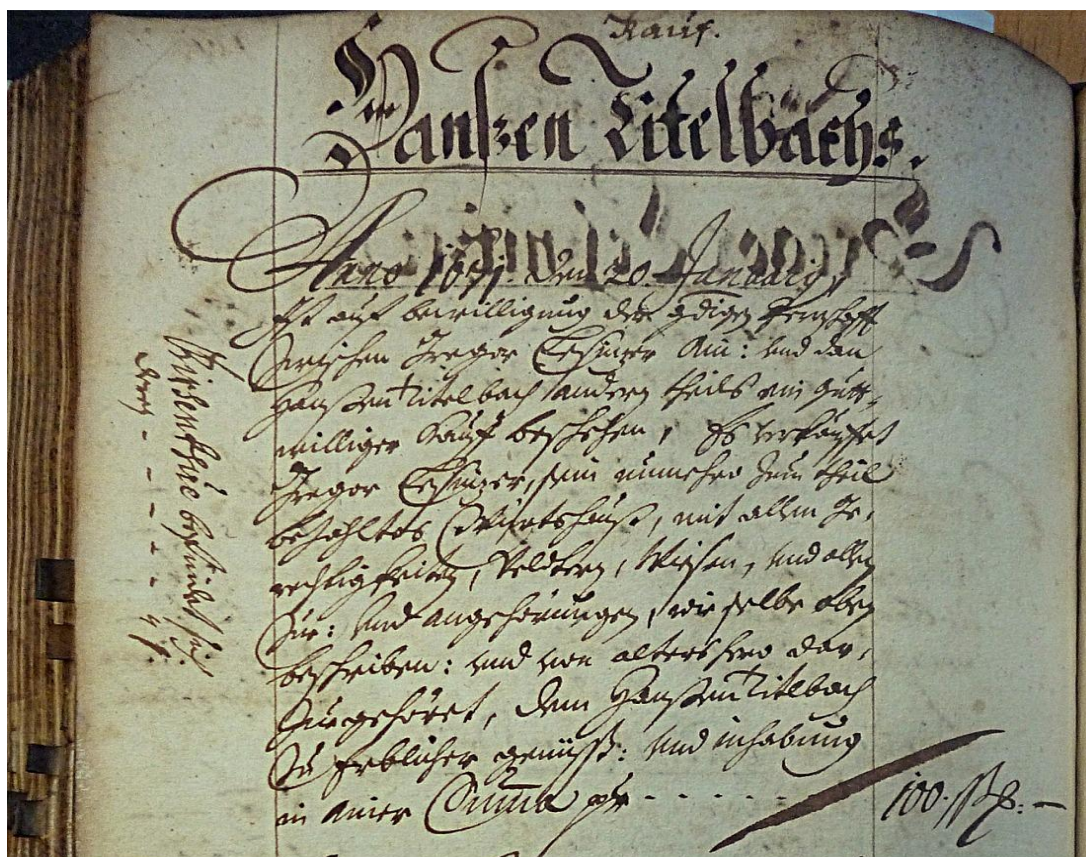 Kauf.
Hanßen Titelbachs.
Anno 1671. Den 20. January,
Ist auf bewilligung der gdigen Herrschafft
Zwischen Gregor ein: und dan
Hanßen Titelbach andern theils ein gutt-
williger Kauf beschehen, Es verkauffet
Gregor sein nunmehro zum theil
bezahltes Würtshauß, mit allen Ge-
rechtigkeiten, Feldern, Wiesen, und allen
Zue: und angehörungen, wie selbe oben
beschriben: und von altershero dar-
Zue gehöret, dem Hanßen Titlbach
Zu Erblicher genüß: und inhabung
in einer Summa pr - - - - - - 100. ßß: —
befindet sich
deren - - - - -